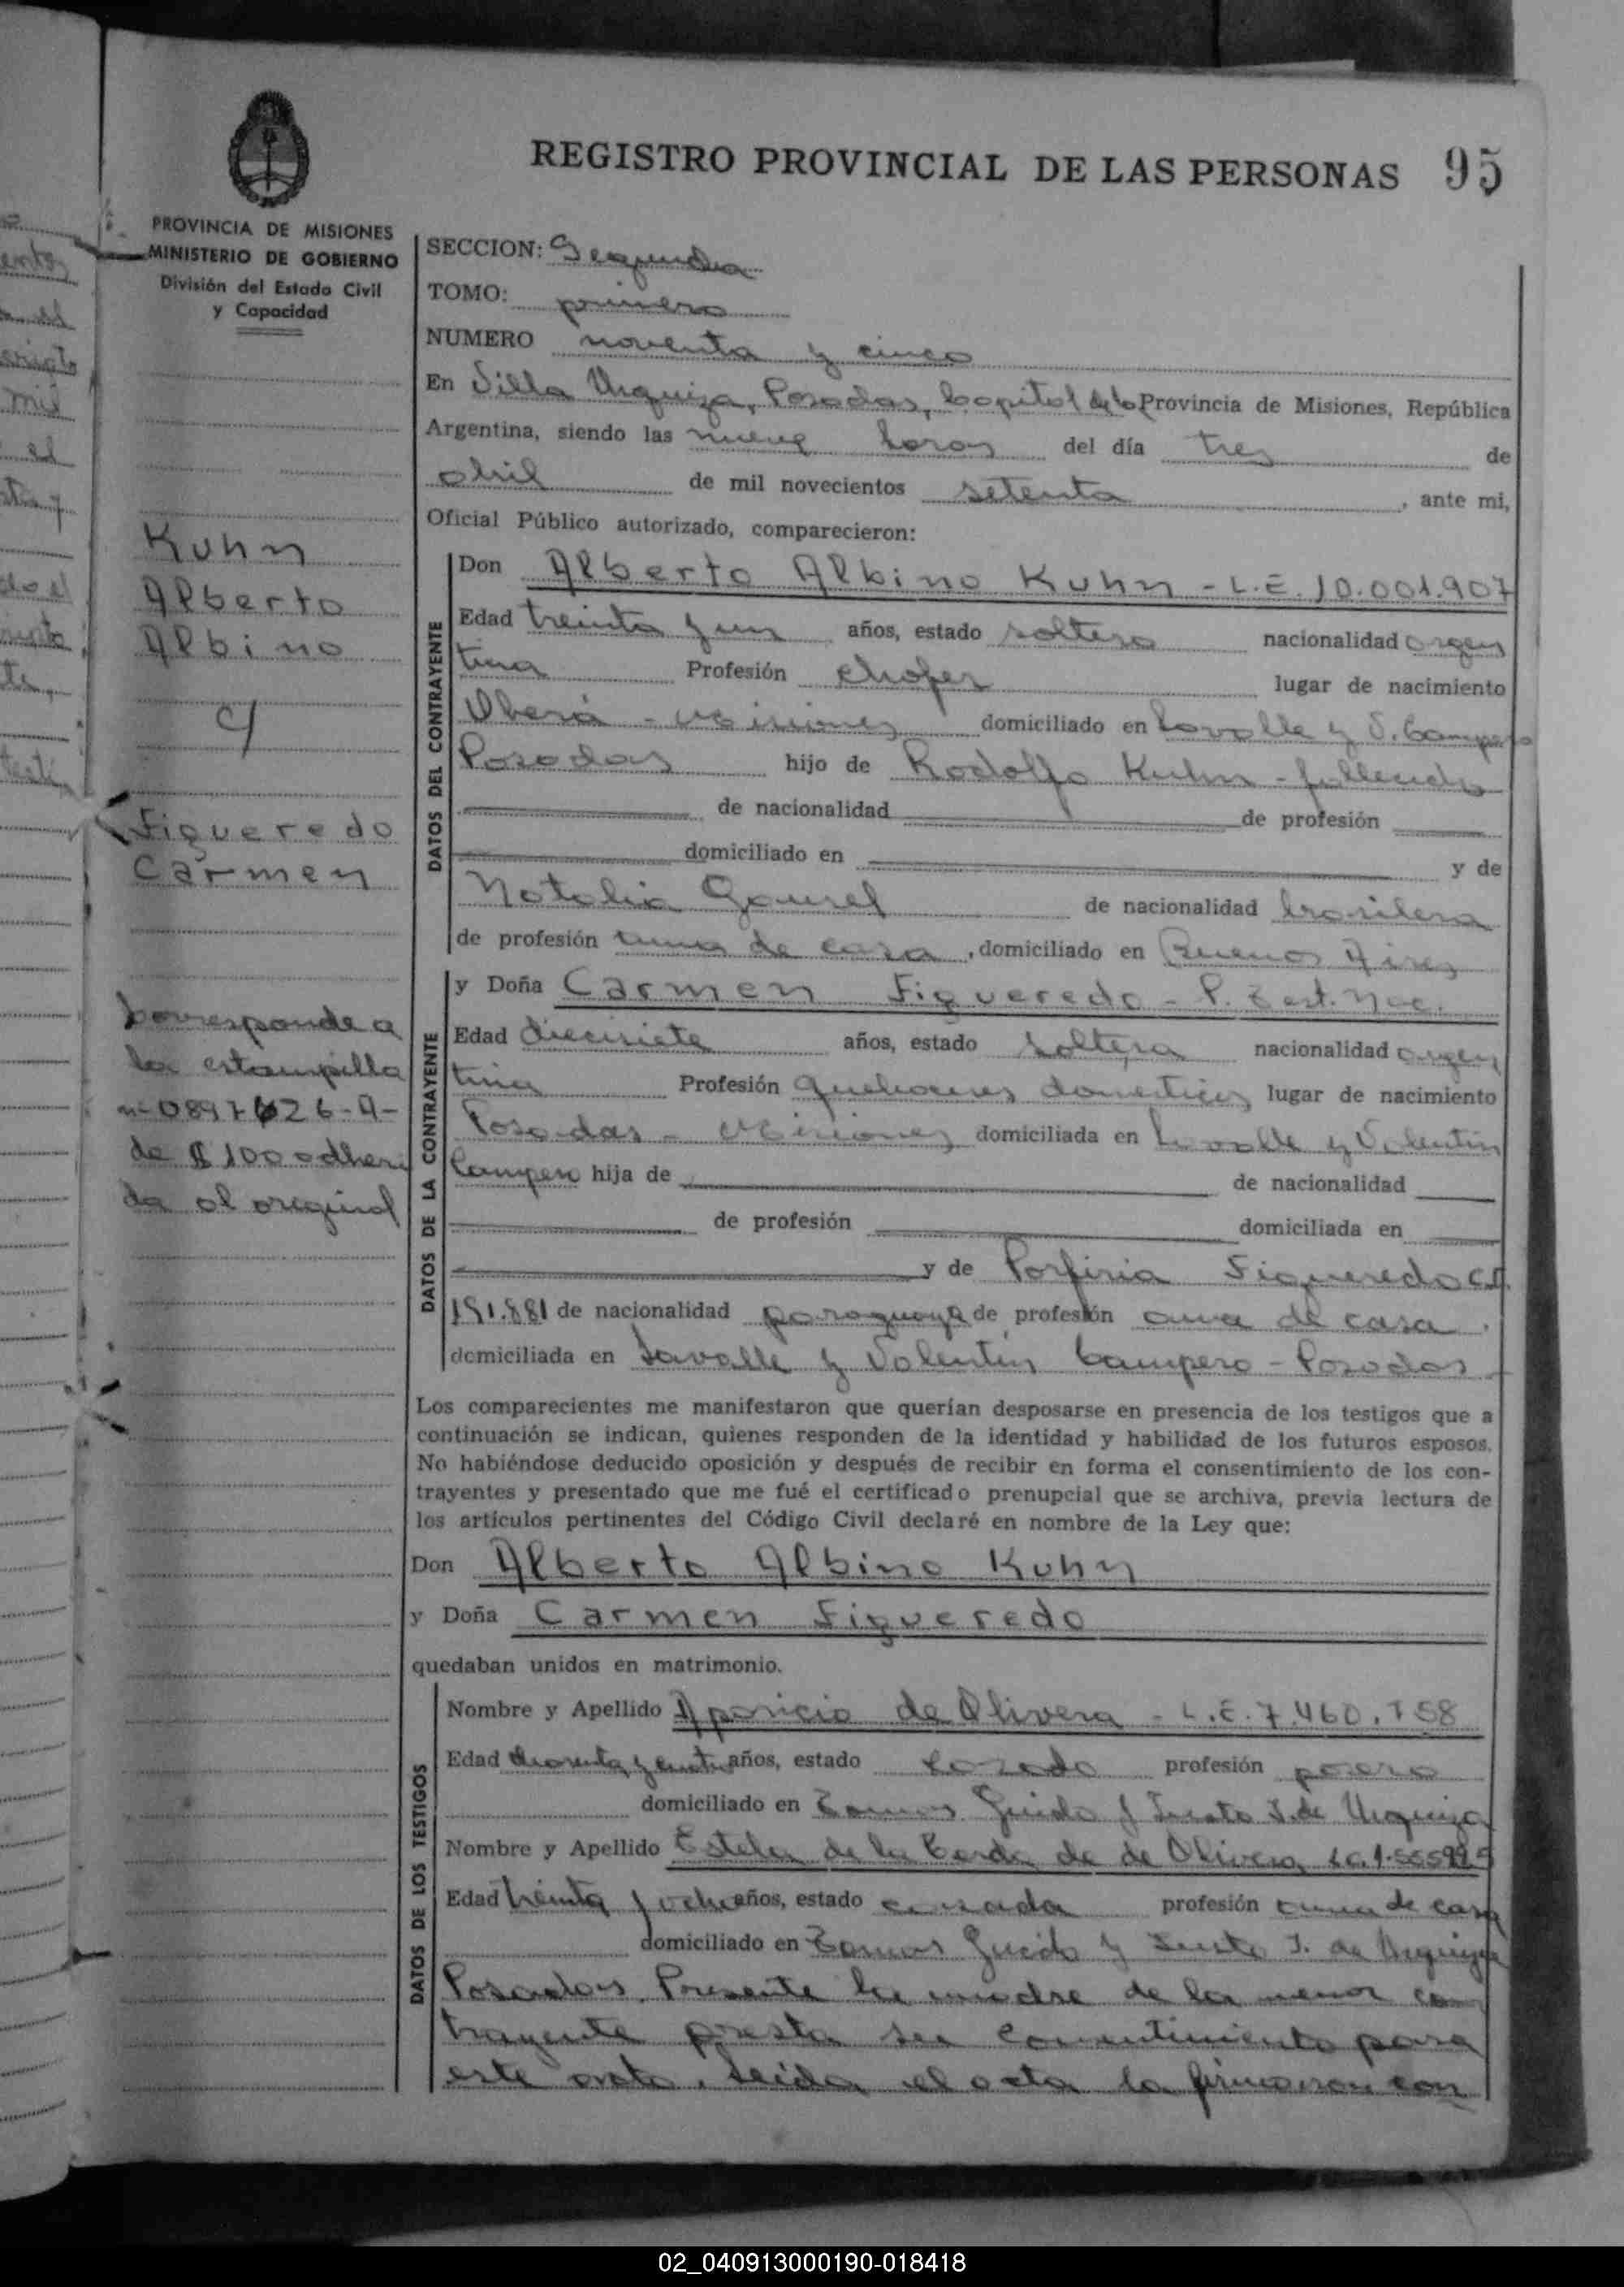 REGISTRO PROVINCIAL DE LAS PERSONAS 95
PROVINCIA DE MISIONES
MINISTERIO DE GOBIERNO
División del Estado Civil
y Capacidad
SECCION: Segunda
TOMO: primero
NUMERO noventa y cinco
En Villa Urquiza, Posadas, Capital de la Provincia de Misiones, República
Argentina, siendo las nueve horas del día tres de
abril de mil novecientos setenta, ante mi,
Oficial Público autorizado, comparecieron:
Kuhn
Alberto
Albino
c/
Figueredo
Carmen
Corresponde a
la estampilla
de $ 100 adheri
da al original
DATOS DEL CONTRAYENTE
Don Alberto Albino Kuhn - L.E. 10.001.907
Edad treinta y un años, estado soltero nacionalidad argen
tina Profesión chofer lugar de nacimiento
Oberá - Misiones domiciliado en Lavalle y V. Campero
Posadas hijo de Rodolfo Kuhn - fallecido
de nacionalidad de profesión
domiciliado en y de
Natalia de nacionalidad brasilera
de profesión ama de casa, domiciliado en Buenos Aires
DATOS DE LA CONTRAYENTE
y Doña Carmen Figueredo - P. Cert. Nac.
Edad diecisiete años, estado soltera nacionalidad argen
tina Profesión quehaceres domesticos lugar de nacimiento
Posadas - Misiones domiciliada en Lavalle y Valentin
Campero hija de de nacionalidad
de profesión domiciliada en
y de Porfiria Figueredo C.I.
191.881 de nacionalidad paraguaya de profesión ama de casa,
domiciliada en Lavalle y Valentin Campero - Posadas
Los comparecientes me manifestaron que querían desposarse en presencia de los testigos que a
continuación se indican, quienes responden de la identidad y habilidad de los futuros esposos.
No habiéndose deducido oposición y después de recibir en forma el consentimiento de los con-
trayentes y presentado que me fué el certificado prenupcial que se archiva, previa lectura de
los artículos pertinentes del Código Civil declaré en nombre de la Ley que:
Don Alberto Albino Kuhn
y Doña Carmen Figueredo
quedaban unidos en matrimonio.
DATOS DE LOS TESTIGOS
Nombre y Apellido Aparicio de Olivera - L.E. 7.460.758
Edad años, estado casado profesión
domiciliado en Tomas Guido y Justo J. de Urquiza
Nombre y Apellido Estela de la Cerda de de Olivera
Edad treinta y ocho años, estado casada profesión ama de casa
domiciliado en Tomas Guido y Justo J. de Urquiza
Posadas. Presente la madre de la menor con
trayente presta su consentimiento para
este acto. Leida el acta la firmaron con
02_040913000190-018418